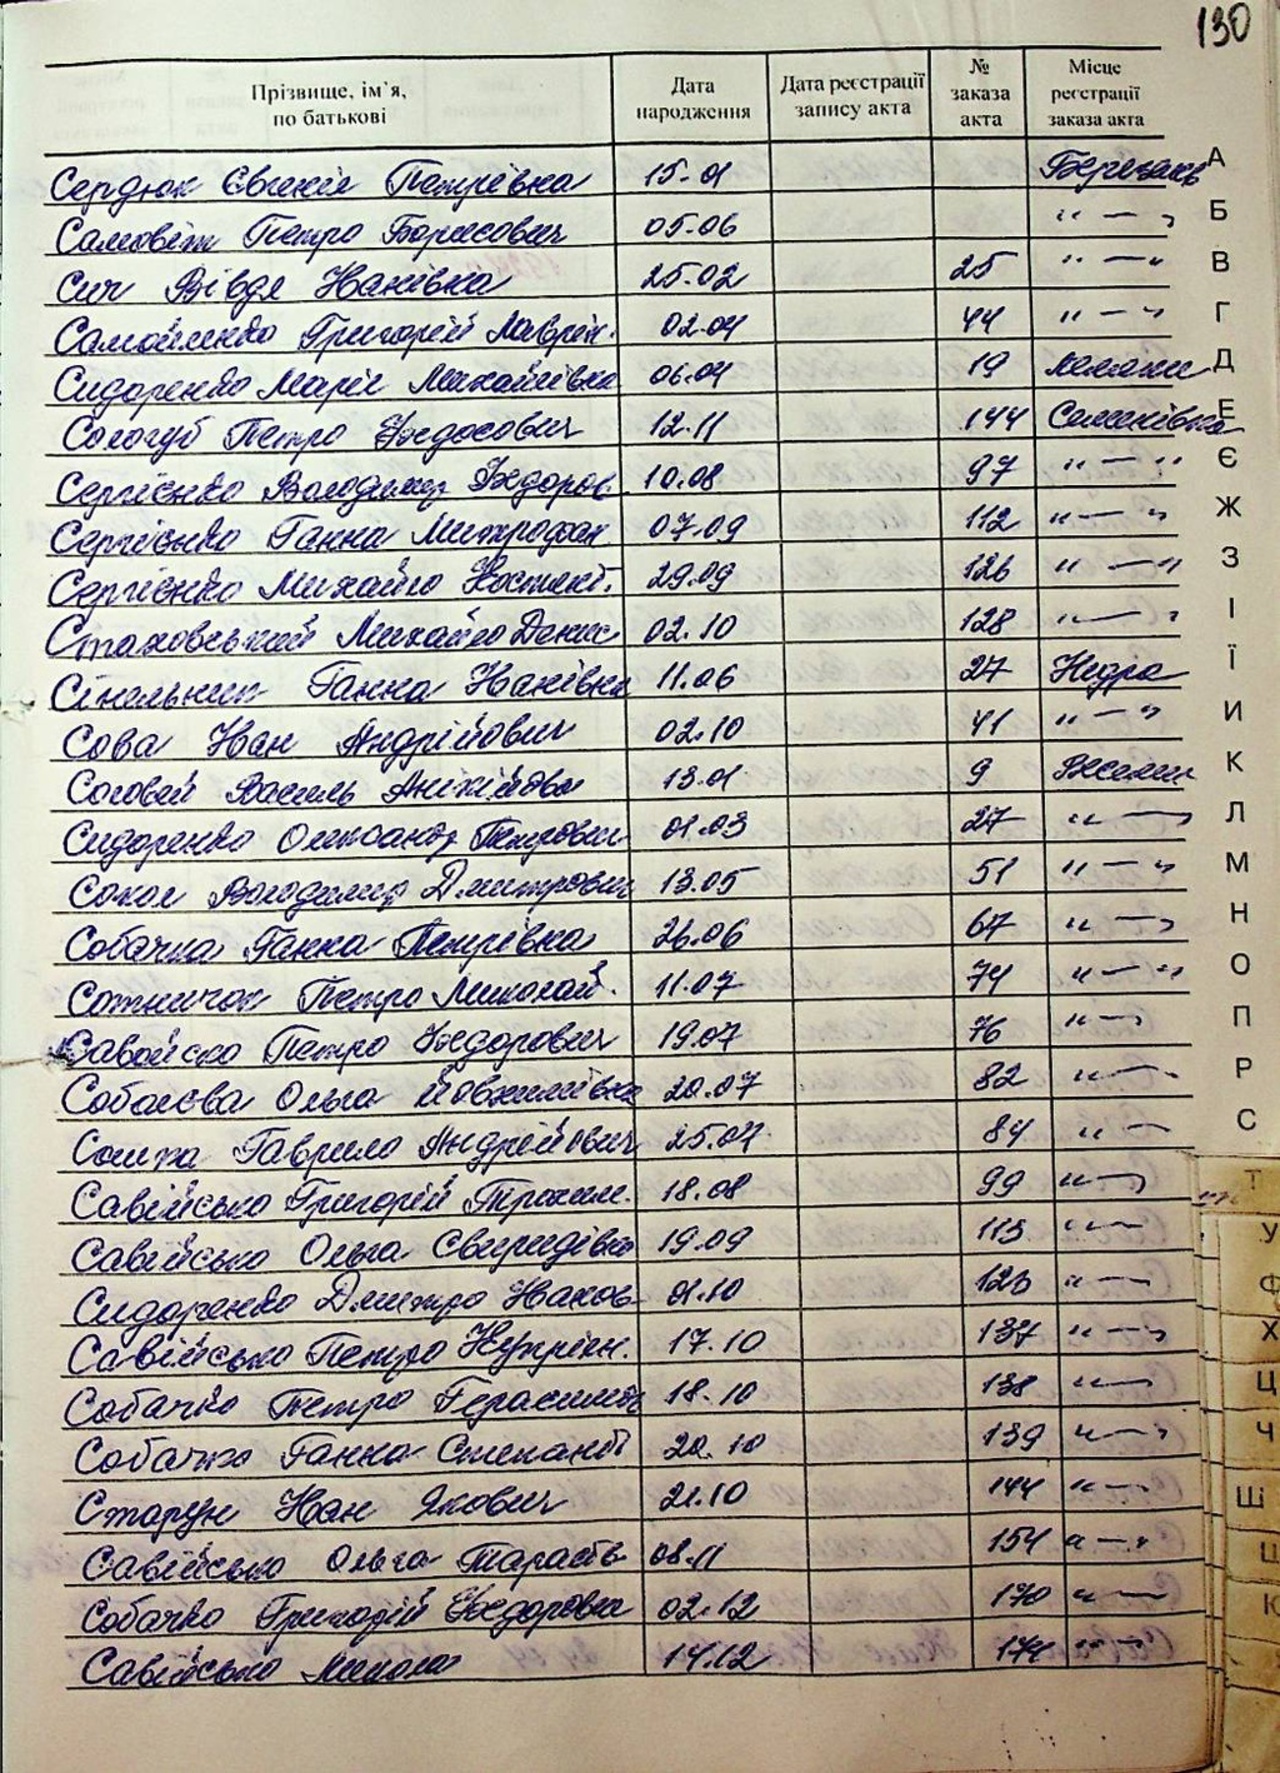 130
Прізвище, ім'я, по батькові Дата народження Дата реєстрації запису акта № заказа акта Місце реєстрації заказа акта
Сердюк Євгенія Петрівна 15.01 Березань
Самовіт Петро Борисович 05.06 " — "
Сич Вівдя Іванівна 25.02 25 " — "
Самойленко Григорій Лаврін. 02.04 44 " — "
Сидоренко Марія Михайлівна 06.04 19
Сологуб Петро Федосович 12.11 144 Семенівка
Сергієнко Володимир Федоров. 10.08 97 " — "
Сергієнко Ганна Митрофан 07.09 112 " — "
Сергієнко Михайло Костянт. 29.09 126 " — "
Стаховський Михайло Денис 02.10 128 " — "
Сінельник Ганна Іванівна 11.06 27 Недра
Сова Іван Андрійович 02.10 41 " — "
Соловей Василь 13.01 9
Сидоренко Олександр Петрович 01.03 27 " — "
Сокол Володимир Дмитрович 13.05 51 " — "
Собачка Ганна Петрівна 26.06 67 " — "
Сотничок Петро Миколай. 11.07 74 " — "
Савойсько Петро Федорович 19.07 76 " — "
Ольга 20.07 82 " — "
Гаврило Андрійович 25.07 84 " — "
Савійсько Григорій Трохим. 18.08 99 " — "
Савійсько Ольга Свиридівна 19.09 113 " — "
Сидоренко Дмитро Іванов. 01.10 123 " — "
Савійсько Петро Купріян. 17.10 137 " — "
Собачко Петро Герасимов 18.10 138 " — "
Собачко Ганна Степанів 20.10 139 " — "
Старун Іван Якович 21.10 144 " — "
Савійсько Ольга Тарасів 08.11 154 " — "
Собачко Григорій Федорович 02.12 170 " — "
Савійсько Микола 14.12 174 " — "
А
Б
В
Г
Д
Е
Є
Ж
З
І
Ї
И
К
Л
М
Н
О
П
Р
С
Т
У
Ф
Х
Ц
Ч
Ш